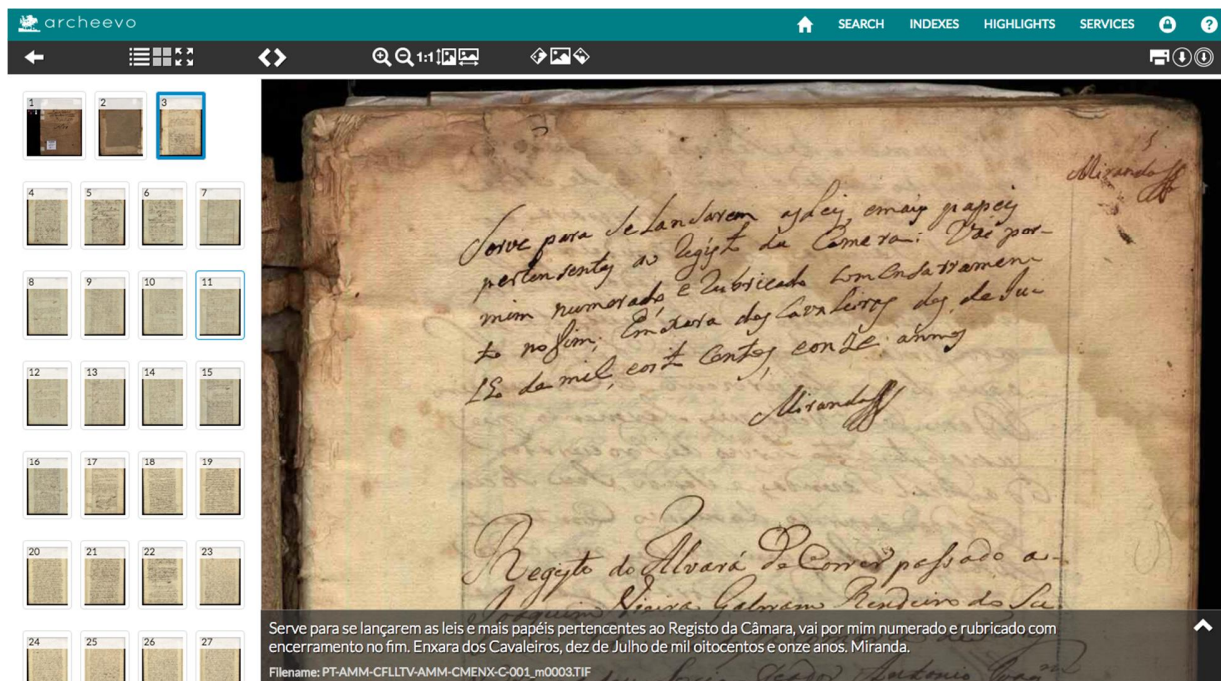 archeevo
SEARCH
INDEXES
HIGHLIGHTS
SERVICES
?
1:1
1
2
3
4
5
6
7
8
9
10
11
12
13
14
15
16
17
18
19
20
21
22
23
24
25
26
27
Miranda
Serve para se lansarem as Leis, e mais papeis
pertensentes ao Regist da Camera: Vai por
mim numerado, e Rubricado com ensarramen
to no fim; Enxara dos Cavaleiros des de Ju
de mil, e oit Centos, e onze annos
Miranda
Registo do Alvará de Correr passado a
Joaquim Vieira Galvam Rendeiro do
Antonio
Serve para se lançarem as leis e mais papéis pertencentes ao Registo da Câmara, vai por mim numerado e rubricado com
encerramento no fim. Enxara dos Cavaleiros, dez de Julho de mil oitocentos e onze anos. Miranda.
Filename: PT-AMM-CFLLTV-AMM-CMENX-C-001_m0003.TIF